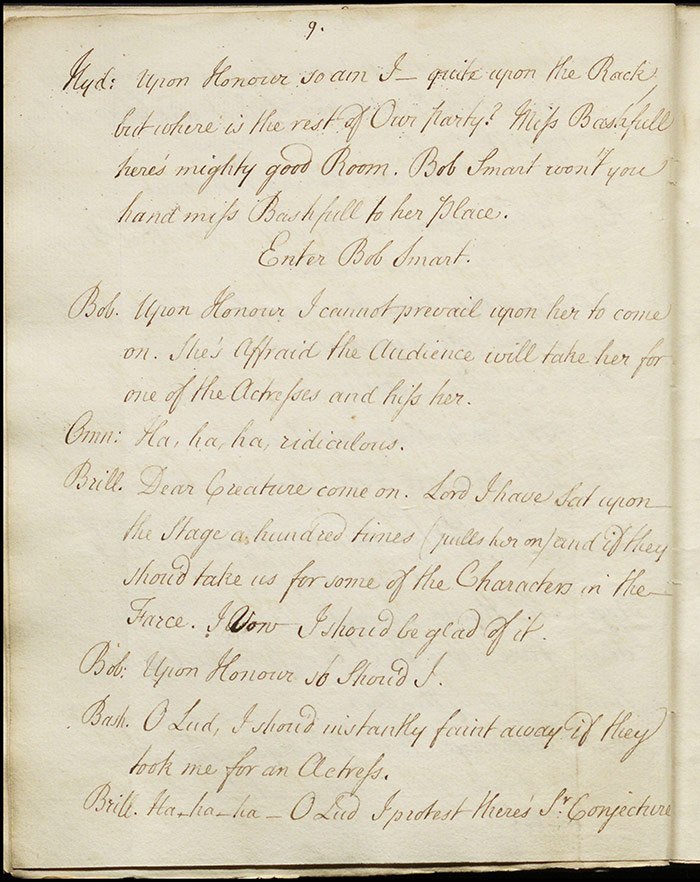 9.
Hyd: Upon Honour so am I — quite upon the Rack
but where is the rest of Our Party? Miſs Bashfull
here's mighty good Room. Bob Smart won't you
hand miſs Bashfull to her Place.
Enter Bob Smart.
Bob. Upon Honour I cannot prevail upon her to come
on. She's Affraid the Audience will take her for
one of the Actreſses and hiſs her.
Omn: Ha, ha, ha, ridiculous.
Brill. Dear Creature come on. Lord I have Sat upon
the Stage a hundred times (pulls her on) and if they
shoud take us for some of the Characters in the
Farce. I Vow I shoud be glad of it.
Bob: Upon Honour so Shou'd I.
Bash. O Lud, I shou'd instantly faint away if they
took me for an Actreſs.
Brill. Ha-ha-ha — O Lud I protest there's Sr. Conjecture